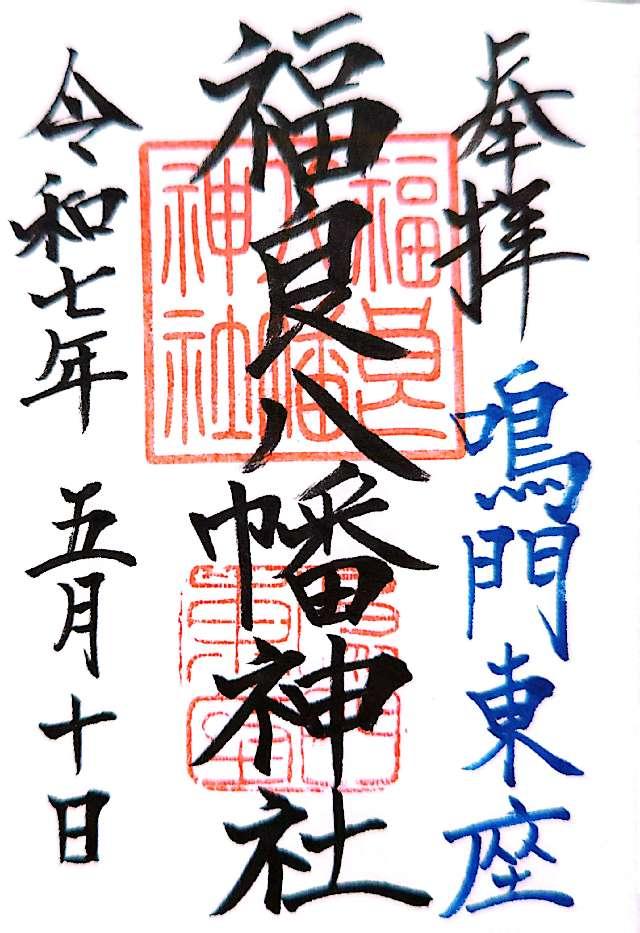 奉拝
鳴門東座
福良八幡神社
福良
八幡
神社
令和七年 五月十日